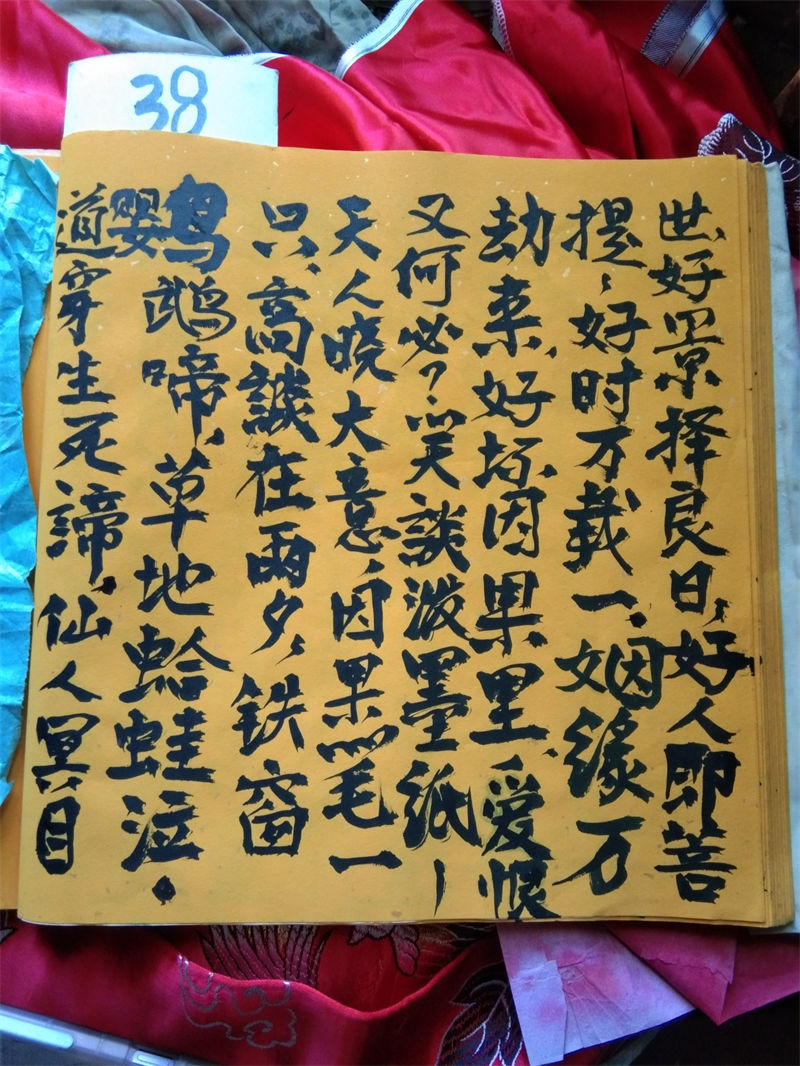 38
世、好景择良日，好人即菩
提、好时万载一。姻缘万
劫来、好坏因果里、爱恨
又何必？笑談泼墨紙，
天人晓大意，因果笔一
只、高談在兩夕，铁窗
鹦鹉啼、草地蛤蛙泣。
道穿生死諦，仙人冥目